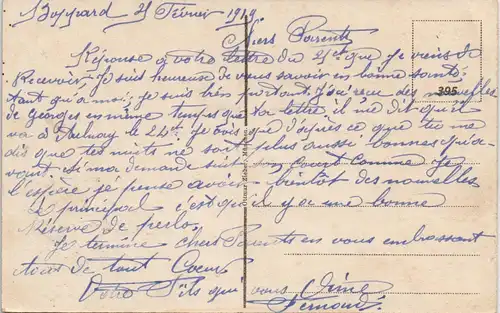 Boppard 25 Février 1919
Chers Parents
Réponse a votre lettre du 21ct que je viens de
Recevoir, je suis heureuse de vous savoir en bonne santé,
tant qu'a moi, je suis très portant. J'ai recue des nouvelles
de Georges en même temps que ta lettre il me dit qu'il
va à Paulnay le 24ct. Je vois que d'après ce que tu me
dis que tes nuits ne sont plus aussi bonnes qu'a-
vant. Si ma demande suit son court comme je
l'espère je pense avoir bientôt des nouvelles
Le principal c'est qu'il y a une bonne
Réserve de perlos,
Je termine chers Parents en vous embrassant
tous de tout Coeur
Votre Fils qui vous aime
Fernand
395